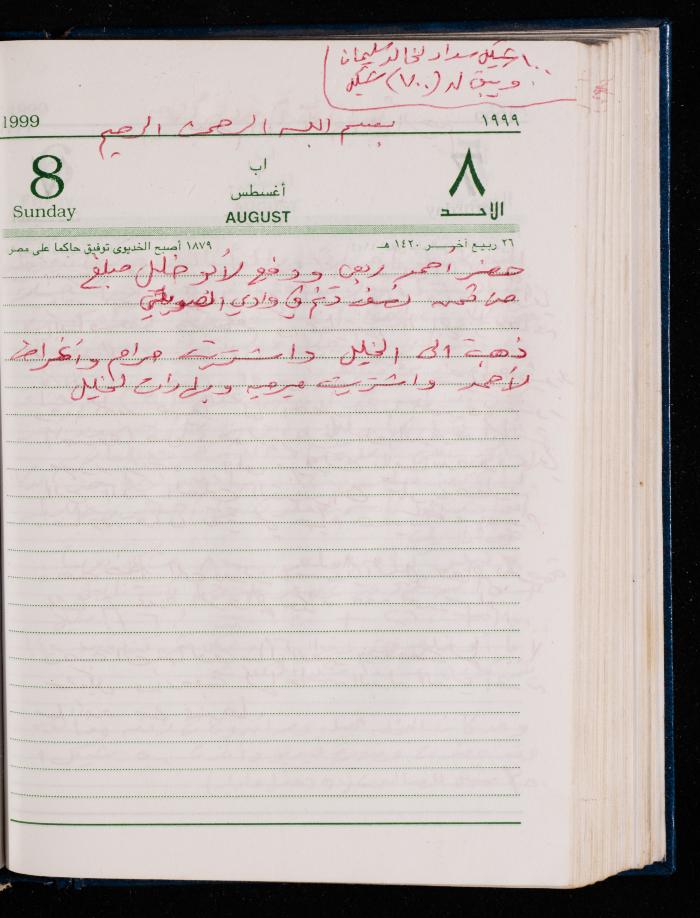 ١٠٠ شيكل سداد لخالد سليمان
ويبقى له (٧٠٠) شيكل
1999
بسم الله الرحمن الرحيم
١٩٩٩
8
Sunday
اب
أغسطس
AUGUST
٨
الاحد
٢٦ ربيع آخر ١٤٢٠ هـ
١٨٧٩ أصبح الخديوى توفيق حاكما على مصر
حضر احمد ربعي ودفع لأبو خليل مبلغ
من ثمن نصف دنم في وادي
ذهبت الى الخليل واشتريت حرام وأغراض
لأحمد واشتريت وبهارات لخليل